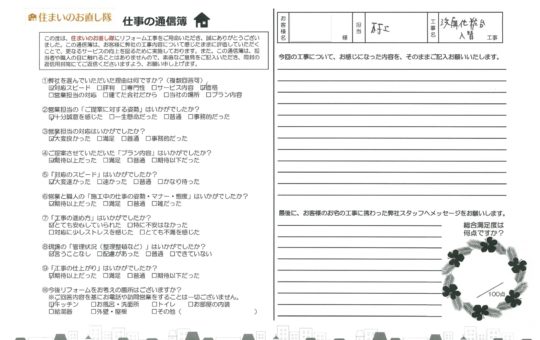 住まいのお直し隊 仕事の通信簿
この度は、住まいのお直し隊にリフォーム工事をご用命いただき、誠にありがとうござい
ました。この通信簿は、お客様に弊社の工事内容について感じたままに評価していただく
ことで、更なるサービスの向上を図るために実施しております。また、この通信簿は、担
当者や職人の目に触れることはありませんので、素直なご意見をご記入いただき、同封の
返信用封筒にてご返信くださいますよう、お願い申し上げます。
①弊社を選んでいただいた理由は何ですか?(複数回答可)
☑対応スピード □評判 □専門性 □サービス内容 ☑価格
□営業担当の対応 □建てた会社だから □当社の場所 □プラン内容
②営業担当の「ご提案に対する姿勢」はいかがでしたか?
☑十分誠意を感じた □一生懸命だった □普通 □事務的だった
③営業担当の対応はいかがでしたか?
☑大変良かった □満足 □普通 □事務的だった
④ご提案させていただいた「プラン内容」はいかがでしたか?
☑期待以上だった □満足 □普通 □期待以下だった
⑤「対応のスピード」はいかがでしたか?
☑大変速かった □速かった □普通 □かなり待った
⑥営業と職人の「施工中の仕事の姿勢・マナー・態度」はいかがでしたか?
☑期待以上だった □満足 □普通 □雑だった
⑦「工事の進め方」はいかがでしたか?
☑とても安心していられた □特に不安はなかった
□対応に少しストレスを感じた □とても不満を感じた
⑧現場の「管理状況(整理整頓など)」はいかがでしたか?
☑言うことなし □配慮があった □普通 □できていない
⑨「工事の仕上がり」はいかがでしたか?
☑期待以上だった □満足 □普通 □期待以下だった
⑩今後リフォームをお考えの箇所はございますか?
※ご回答内容を基にお電話や訪問営業をすることは一切ございません。
☑キッチン □お風呂・洗面所 □トイレ □お部屋の内装
□給湯器 □外壁・屋根 □その他( )
お客様名 様 担当 工事名 洗面化粧台
入替 工事
今回の工事について、お感じになった内容を、そのままご記入お願いいたします。
最後に、お客様のお宅の工事に携わった弊社スタッフへメッセージをお願いします。
総合満足度は
何点ですか?
/100点